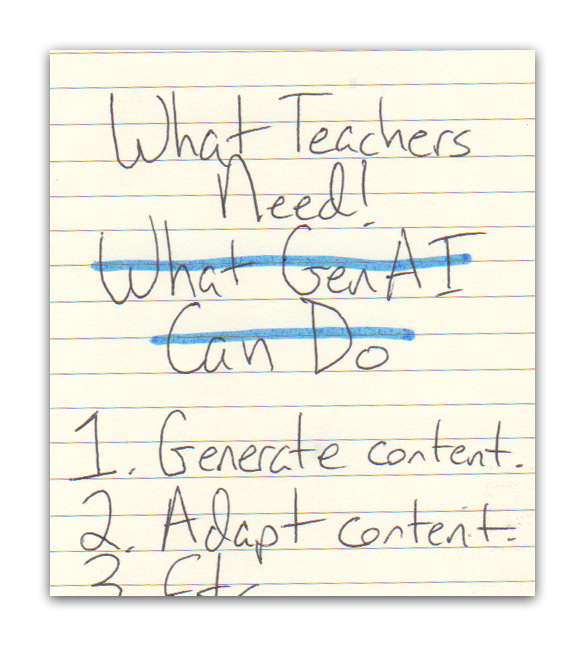 What Teachers
Need!
What GenAI
Can Do
1. Generate content.
2. Adapt content.
3. Etc